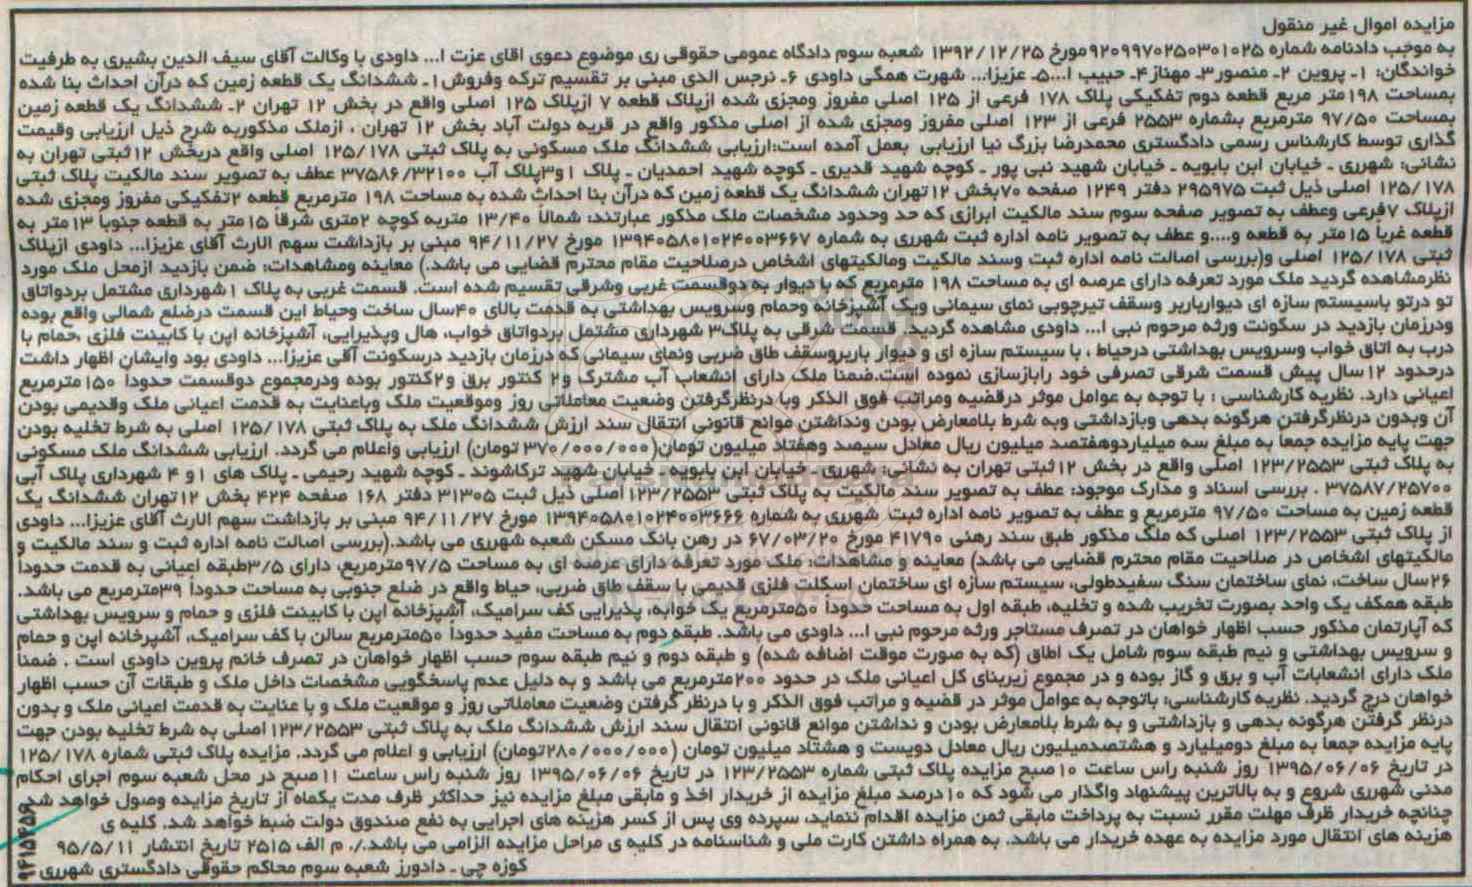 مزایده اموال غیر منقول
به موجب دادنامه شماره ۹۲۰۹۹۷۰۲۵۰۳۰۱۰۲۵مورخ ۱۳۹۲/۱۲/۲۵ شعبه سوم دادگاه عمومی حقوقی ری موضوع دعوی اقای عزت ا... داودی با وکالت آقای سیف الدین بشیری به طرفیت
خواندگان: ۱ـ پروین ۲ـ منصور۳ـ مهناز۴ـ حبیب ا...۵ـ عزیزا... شهرت همگی داودی ۶ـ نرجس الذی مبنی بر تقسیم ترکه وفروش ۱ـ ششدانگ یک قطعه زمین که درآن احداث بنا شده
بمساحت ۱۹۸متر مربع قطعه دوم تفکیکی پلاک ۱۷۸ فرعی از ۱۲۵ اصلی مفروز ومجزی شده ازپلاک قطعه ۷ ازپلاک ۱۲۵ اصلی واقع در بخش ۱۲ تهران ۲ـ ششدانگ یک قطعه زمین
بمساحت ۹۷/۵۰ مترمربع بشماره ۲۵۵۳ فرعی از ۱۲۳ اصلی مفروز ومجزی شده از اصلی مذکور واقع در قریه دولت آباد بخش ۱۲ تهران ، ازملک مذکوربه شرح ذیل ارزیابی وقیمت
گذاری توسط کارشناس رسمی دادگستری محمدرضا بزرگ نیا ارزیابی بعمل آمده است:ارزیابی ششدانگ ملک مسکونی به پلاک ثبتی ۱۲۵/۱۷۸ اصلی واقع دربخش ۱۲ثبتی تهران به
نشانی: شهرری ـ خیابان ابن بابویه ـ خیابان شهید نبی پور ـ کوچه شهید قدیری ـ کوچه شهید احمدیان ـ پلاک ۱و۳پلاک آب ۳۷۵۸۶/۳۲۱۰۰ عطف به تصویر سند مالکیت پلاک ثبتی
۱۲۵/۱۷۸ اصلی ذیل ثبت ۲۹۵۹۷۵ دفتر ۱۲۴۹ صفحه ۷۰بخش ۱۲تهران ششدانگ یک قطعه زمین که درآن بنا احداث شده به مساحت ۱۹۸ مترمربع قطعه ۲تفکیکی مفروز ومجزی شده
ازپلاک ۷فرعی وعطف به تصویر صفحه سوم سند مالکیت ابرازی که حد وحدود مشخصات ملک مذکور عبارتند: شمالاً ۱۳/۴۰ متربه کوچه ۲متری شرقاً ۱۵متر به قطعه جنوباً ۱۳متر به
قطعه غرباً ۱۵متر به قطعه و....و عطف به تصویر نامه اداره ثبت شهرری به شماره ۱۳۹۴۰۵۸۰۱۰۲۴۰۰۳۶۶۷ مورخ ۹۴/۱۱/۲۷ مبنی بر بازداشت سهم الارث آقای عزیزا... داودی ازپلاک
ثبتی ۱۲۵/۱۷۸ اصلی و(بررسی اصالت نامه اداره ثبت وسند مالکیت ومالکیتهای اشخاص درصلاحیت مقام محترم قضایی می باشد.) معاینه ومشاهدات: ضمن بازدید ازمحل ملک مورد
نظرمشاهده گردید ملک مورد تعرفه دارای عرصه ای به مساحت ۱۹۸ مترمربع که با دیوار به دوقسمت غربی وشرقی تقسیم شده است. قسمت غربی به پلاک ۱شهرداری مشتمل بردواتاق
تو درتو باسیستم سازه ای دیوارباربر وسقف تیرچوبی نمای سیمانی ویک آشپزخانه وحمام وسرویس بهداشتی به قدمت بالای ۴۰سال ساخت وحیاط این قسمت درضلع شمالی واقع بوده
ودرزمان بازدید در سکونت ورثه مرحوم نبی ا... داودی مشاهده گردید. قسمت شرقی به پلاک۳ شهرداری مشتمل بردواتاق خواب، هال وپذیرایی، آشپزخانه اپن با کابینت فلزی ،حمام با
درب به اتاق خواب وسرویس بهداشتی درحیاط ، با سیستم سازه ای و دیوار باربروسقف طاق ضربی ونمای سیمانی که درزمان بازدید درسکونت آقی عزیزا... داودی بود وایشان اظهار داشت
درحدود ۱۲سال پیش قسمت شرقی تصرفی خود رابازسازی نموده است.ضمناً ملک دارای انشعاب آب مشترک و۲ کنتور برق و۲کنتور بوده ودرمجموع دوقسمت حدوداً ۱۵۰مترمربع
اعیانی دارد. نظریه کارشناسی : با توجه به عوامل موثر درقضیه ومراتب فوق الذکر وبا درنظرگرفتن وضعیت معاملاتی روز وموقعیت ملک وباعنایت به قدمت اعیانی ملک وقدیمی بودن
آن وبدون درنظرگرفتن هرگونه بدهی وبازداشتی وبه شرط بلامعارض بودن ونداشتن موانع قانونی انتقال سند ارزش ششدانگ ملک به پلاک ثبتی ۱۲۵/۱۷۸ اصلی به شرط تخلیه بودن
جهت پایه مزایده جمعاً به مبلغ سه میلیاردوهفتصد میلیون ریال معادل سیصد وهفتاد میلیون تومان(۳۷۰/۰۰۰/۰۰۰ تومان) ارزیابی واعلام می گردد. ارزیابی ششدانگ ملک مسکونی
به پلاک ثبتی ۱۲۳/۲۵۵۳ اصلی واقع در بخش ۱۲ثبتی تهران به نشانی: شهرری ـ خیابان ابن بابویه ـ خیابان شهید ترکاشوند ـ کوچه شهید رحیمی ـ پلاک های ۱و ۴ شهرداری پلاک آبی
۳۷۵۸۷/۲۵۷۰۰ . بررسی اسناد و مدارک موجود: عطف به تصویر سند مالکیت به پلاک ثبتی ۱۲۳/۲۵۵۳اصلی ذیل ثبت ۳۱۳۰۵ دفتر ۱۶۸ صفحه ۴۲۴ بخش ۱۲تهران ششدانگ یک
قطعه زمین به مساحت ۹۷/۵۰ مترمربع و عطف به تصویر نامه اداره ثبت شهرری به شماره ۱۳۹۴۰۵۸۰۱۰۲۴۰۰۳۶۶۶ مورخ ۹۴/۱۱/۲۷ مبنی بر بازداشت سهم الارث آقای عزیزا... داودی
از پلاک ثبتی ۱۲۳/۲۵۵۳ اصلی که ملک مذکور طبق سند رهنی ۴۱۷۹۰ مورخ ۶۷/۰۳/۲۰ در رهن بانک مسکن شعبه شهرری می باشد.(بررسی اصالت نامه اداره ثبت و سند مالکیت و
مالکیتهای اشخاص در صلاحیت مقام محترم قضایی می باشد) معاینه و مشاهدات: ملک مورد تعرفه دارای عرصه ای به مساحت ۹۷/۵مترمربع، دارای ۳/۵طبقه اعیانی به قدمت حدوداً
۲۶سال ساخت، نمای ساختمان سنگ سفیدطولی، سیستم سازه ای ساختمان اسکلت فلزی قدیمی با سقف طاق ضربی، حیاط واقع در ضلع جنوبی به مساحت حدوداً ۳۹مترمربع می باشد.
طبقه همکف یک واحد بصورت تخریب شده و تخلیه، طبقه اول به مساحت حدوداً ۵۰مترمربع یک خوابه، پذیرایی کف سرامیک، آشپزخانه اپن با کابینت فلزی و حمام و سرویس بهداشتی
که آپارتمان مذکور حسب اظهار خواهان در تصرف مستاجر ورثه مرحوم نبی ا... داودی می باشد. طبقه دوم به مساحت مفید حدوداً ۵۰مترمربع سالن با کف سرامیک، آشپرخانه اپن و حمام
و سرویس بهداشتی و نیم طبقه سوم شامل یک اطاق (که به صورت موقت اضافه شده) و طبقه دوم و نیم طبقه سوم حسب اظهار خواهان در تصرف خانم پروین داودی است . ضمناً
ملک دارای انشعابات آب و برق و گاز بوده و در مجموع زیربنای کل اعیانی ملک در حدود ۲۰۰مترمربع می باشد و به دلیل عدم پاسخگویی مشخصات داخل ملک و طبقات آن حسب اظهار
خواهان درج گردید. نظریه کارشناسی: باتوجه به عوامل موثر در قضیه و مراتب فوق الذکر و با درنظر گرفتن وضعیت معاملاتی روز و موقعیت ملک و با عنایت به قدمت اعیانی ملک و بدون
درنظر گرفتن هرگونه بدهی و بازداشتی و به شرط بلامعارض بودن و نداشتن موانع قانونی انتقال سند ارزش ششدانگ ملک به پلاک ثبتی ۱۲۳/۲۵۵۳ اصلی به شرط تخلیه بودن جهت
پایه مزایده جمعاً به مبلغ دومیلیارد و هشتصدمیلیون ریال معادل دویست و هشتاد میلیون تومان (۲۸۰/۰۰۰/۰۰۰تومان) ارزیابی و اعلام می گردد. مزایده پلاک ثبتی شماره ۱۲۵/۱۷۸
در تاریخ ۱۳۹۵/۰۶/۰۶ روز شنبه راس ساعت ۱۰صبح مزایده پلاک ثبتی شماره ۱۲۳/۲۵۵۳ در تاریخ ۱۳۹۵/۰۶/۰۶ روز شنبه راس ساعت ۱۱صبح در محل شعبه سوم اجرای احکام
مدنی شهرری شروع و به بالاترین پیشنهاد واگذار می شود که ۱۰درصد مبلغ مزایده از خریدار اخذ و مابقی مبلغ مزایده نیز حداکثر ظرف مدت یکماه از تاریخ مزایده وصول خواهد شد
چنانچه خریدار ظرف مهلت مقرر نسبت به پرداخت مابقی ثمن مزایده اقدام ننماید، سپرده وی پس از کسر هزینه های اجرایی به نفع صندوق دولت ضبط خواهد شد. کلیه ی
هزینه های انتقال مورد مزایده به عهده خریدار می باشد. به همراه داشتن کارت ملی و شناسنامه در کلیه ی مراحل مزایده الزامی می باشد./. م الف ۲۵۱۵ تاریخ انتشار ۹۵/۵/۱۱
کوزه چی ـ دادورز شعبه سوم محاکم حقوقی دادگستری شهرری